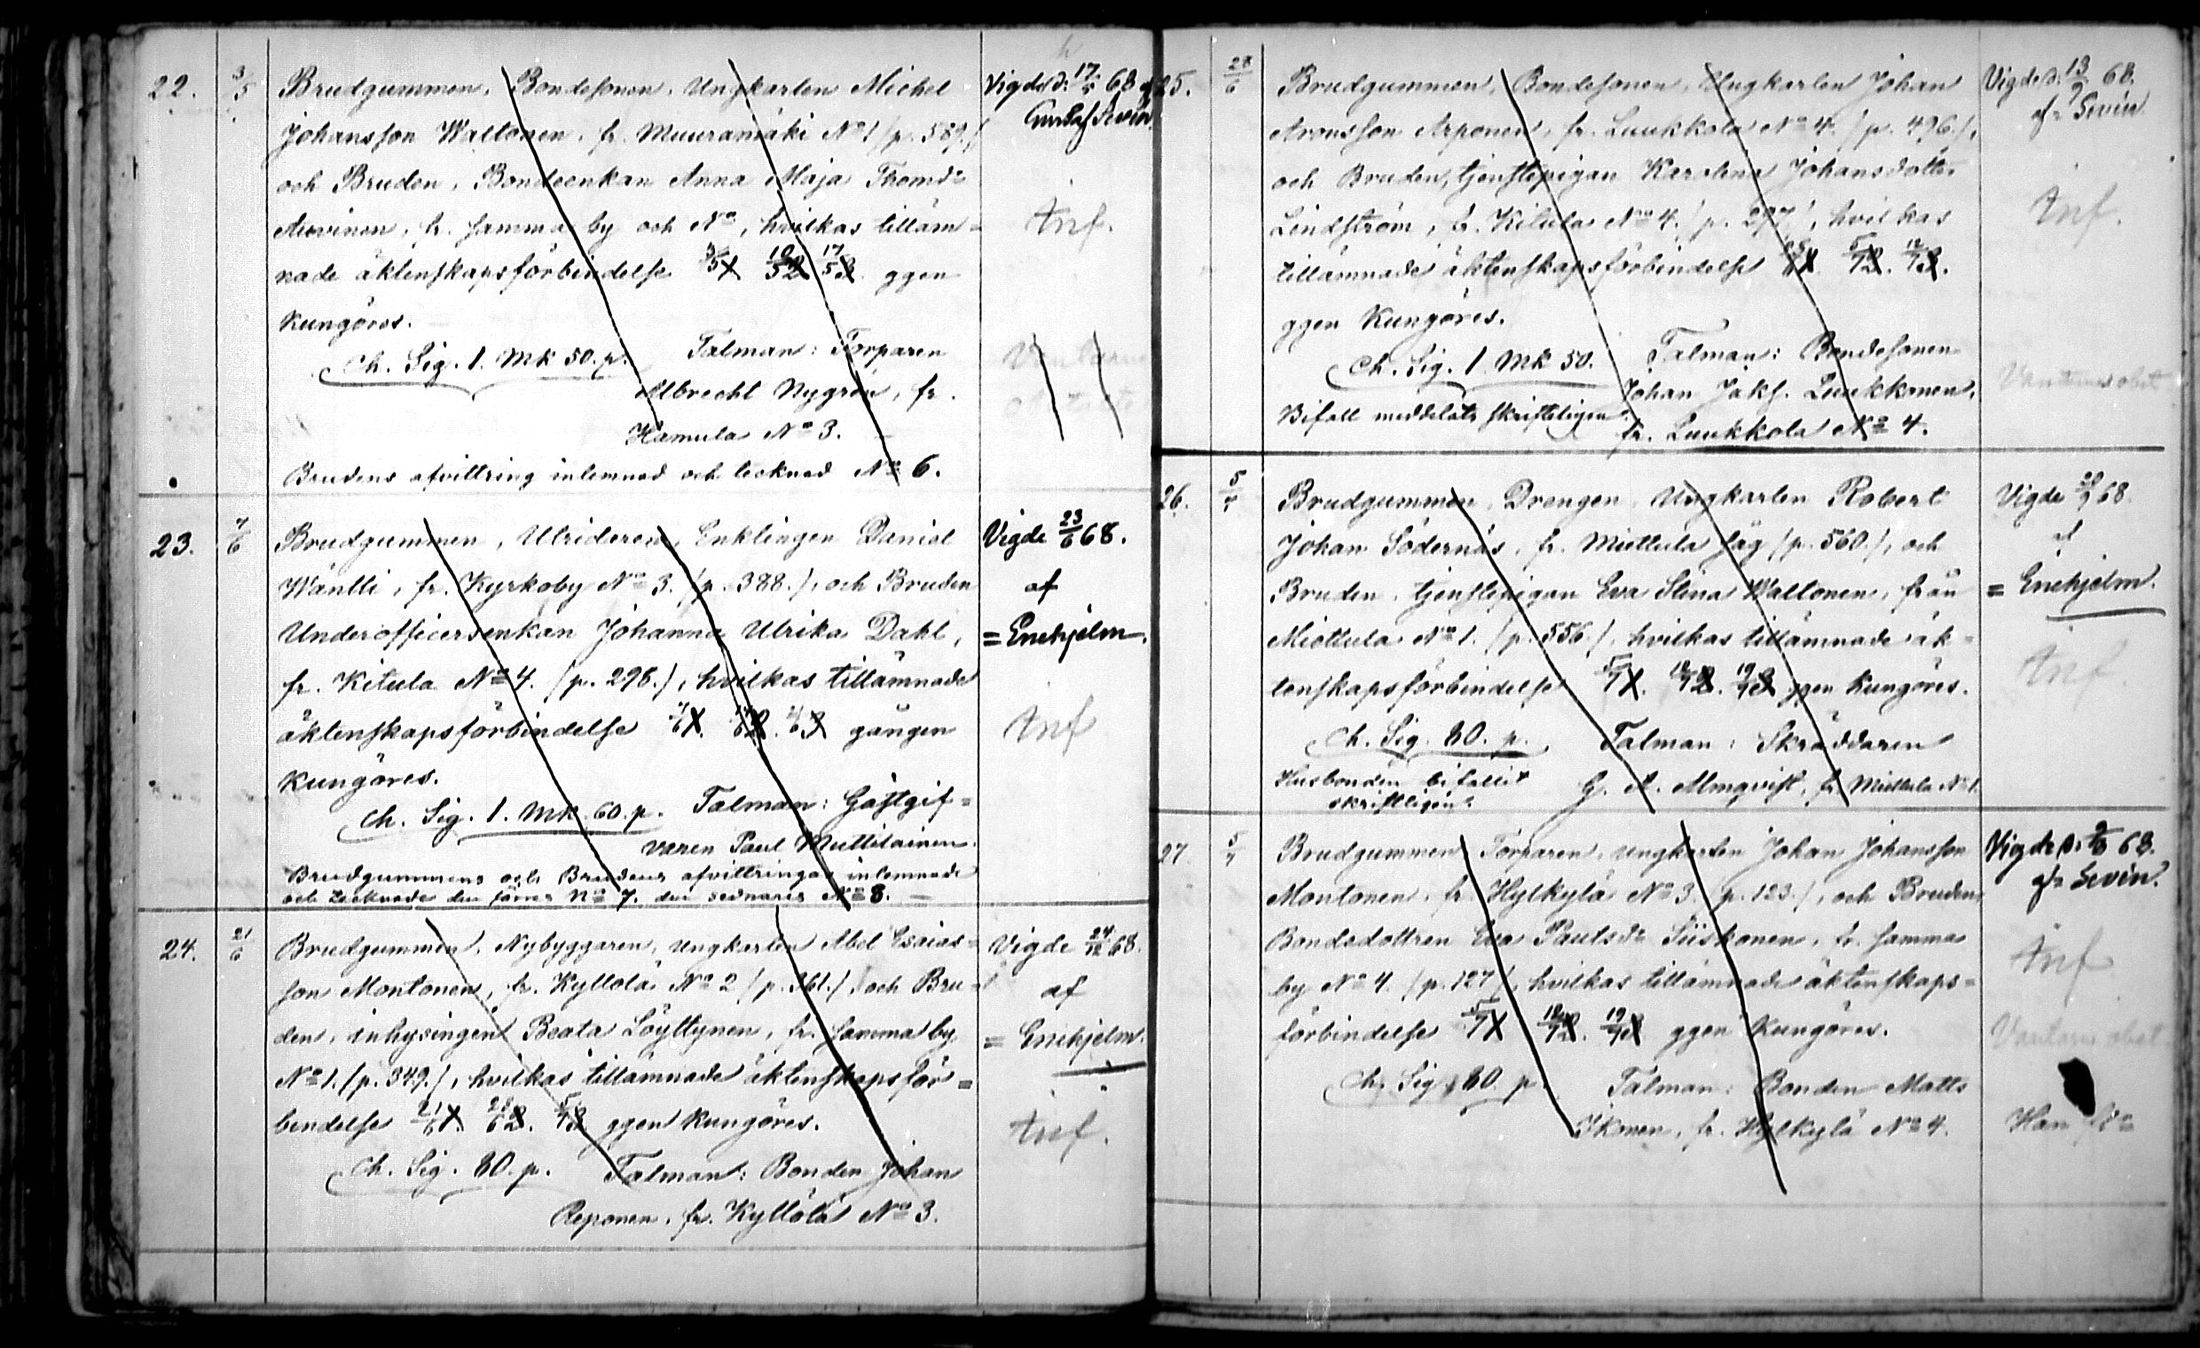 22. 3/5 Brudgummen, Bondesonen, Ungkarlen Michel
Johansson Waltonen, fr. Muuramäki No 1 (p. 589.)
och Bruden, Bondeenkan Anna Maja Thomdr
Auvinen, fr. samma by och No, hvilkas tilläm=
nade äktenskapsförbindelse 3/5 1 10/5 2 17/5 3 ggen
kungöres.
Ch. Sig. 1. Mk 50. p. Talman: Torparen
Albrecht Nygren, fr.
Hamula No 3.
Brudens afvittring inlemnad och tecknad No 6.
Vigde d: 17/5 68 af
Gustaf Sevin
Inf.
23. 7/6 Brudgummen, Utridaren, Enklingen Daniel
Wäntti, fr. Kyrkoby No 3. (p. 388.), och Bruden
Underofficersenkan Johanna Ulrika Dahl,
fr. Kitula No 4. (p. 298.), hvilkas tillämnade
äktenskapsförbindelse 7/6 1. 14/6 2. 21/6 3 gången
kungöres.
Ch. Sig. 1. Mk. 60. p. Talman: Gästgif=
varen Paul Muttilainen.
Brudgummens och Brudens afvittringar inlemnade
och tecknade den förres No 7. den sednares No 8.
Vigde 23/6 68.
af
= Enehjelm.
Inf
24. 21/6 Brudgummen, Nybyggaren, ungkarlen Abel Esaias=
son Montonen, fr. Kyllölä No 2 (p. 361.), och Bru=
den, inhysingen Beata Löyttynen, fr. samma by
No 1. (p. 349.), hvilkas tillämnade äktenskapsför=
bindelse 21/6 1. 28/6 2. 5/7 3 ggen kungöres.
Ch. Sig. 80. p. Talman: Bonden Johan
Reponen, fr. Kyllölä No 3.
Vigde 24/12 68.
af
= Enehjelm.
Inf.
25. 28/6 Brudgummen, Bondesonen, Ungkarlen Johan
Aronsson Arponen, fr. Luukkola No 4. (p. 496.),
och Bruden, tjenstepigan Karolina Johansdotter
Lindström, fr. Kitula No 4. (p. 297), hvilkas
tillämnade äktenskapsförbindelse 28/6 1. 5/7 2. 12/7 3.
ggen kungöres.
Ch. Sig. 1 Mk 50. Talman: Bondesonen
Johan Jaks. Luukkonen,
Bifall meddelats skrifteligen. fr. Luukkola No 4.
Vigde d: 13/9 68.
af= Sevin
Inf.
26. 5/7 Brudgummen, Drengen, Ungkarlen Robert
Johan Södernäs, fr. Miettula såg (p. 560.), och
Bruden, tjenstepigan Eva Stina Waltonen, från
Miettula No 1. (p. 556.), hvilkas tillämnade äk=
tenskapsförbindelse 5/7 1. 12/7 2. 19/7 3 ggen kungöres.
Ch. Sig. 80. p. Talman: Skräddaren
Husbonden bifallit G. A. Almqvist, fr. Miettula No 1.
skriftligen.
Vigde
68
af
= Enehjelm.
Inf
27 5/7 Brudgummen, Torparen, ungkarlen Johan Johansson
Montonen, fr. Hylkylä No 3. (p. 123.), och Bruden,
Bondedottren Eva Paulsdr Siiskonen, fr. samma
by No 4. (p. 127), hvilkas tillämnade äktenskaps=
förbindelse 5/7 1 12/7 2. 19/7 3 ggen kungöres.
Ch. Sig. 80. p. Talman: Bonden Matts
Ikonen, fr. Hylkylä No 4.
Vigde d:
68.
af= Sevin.
Inf